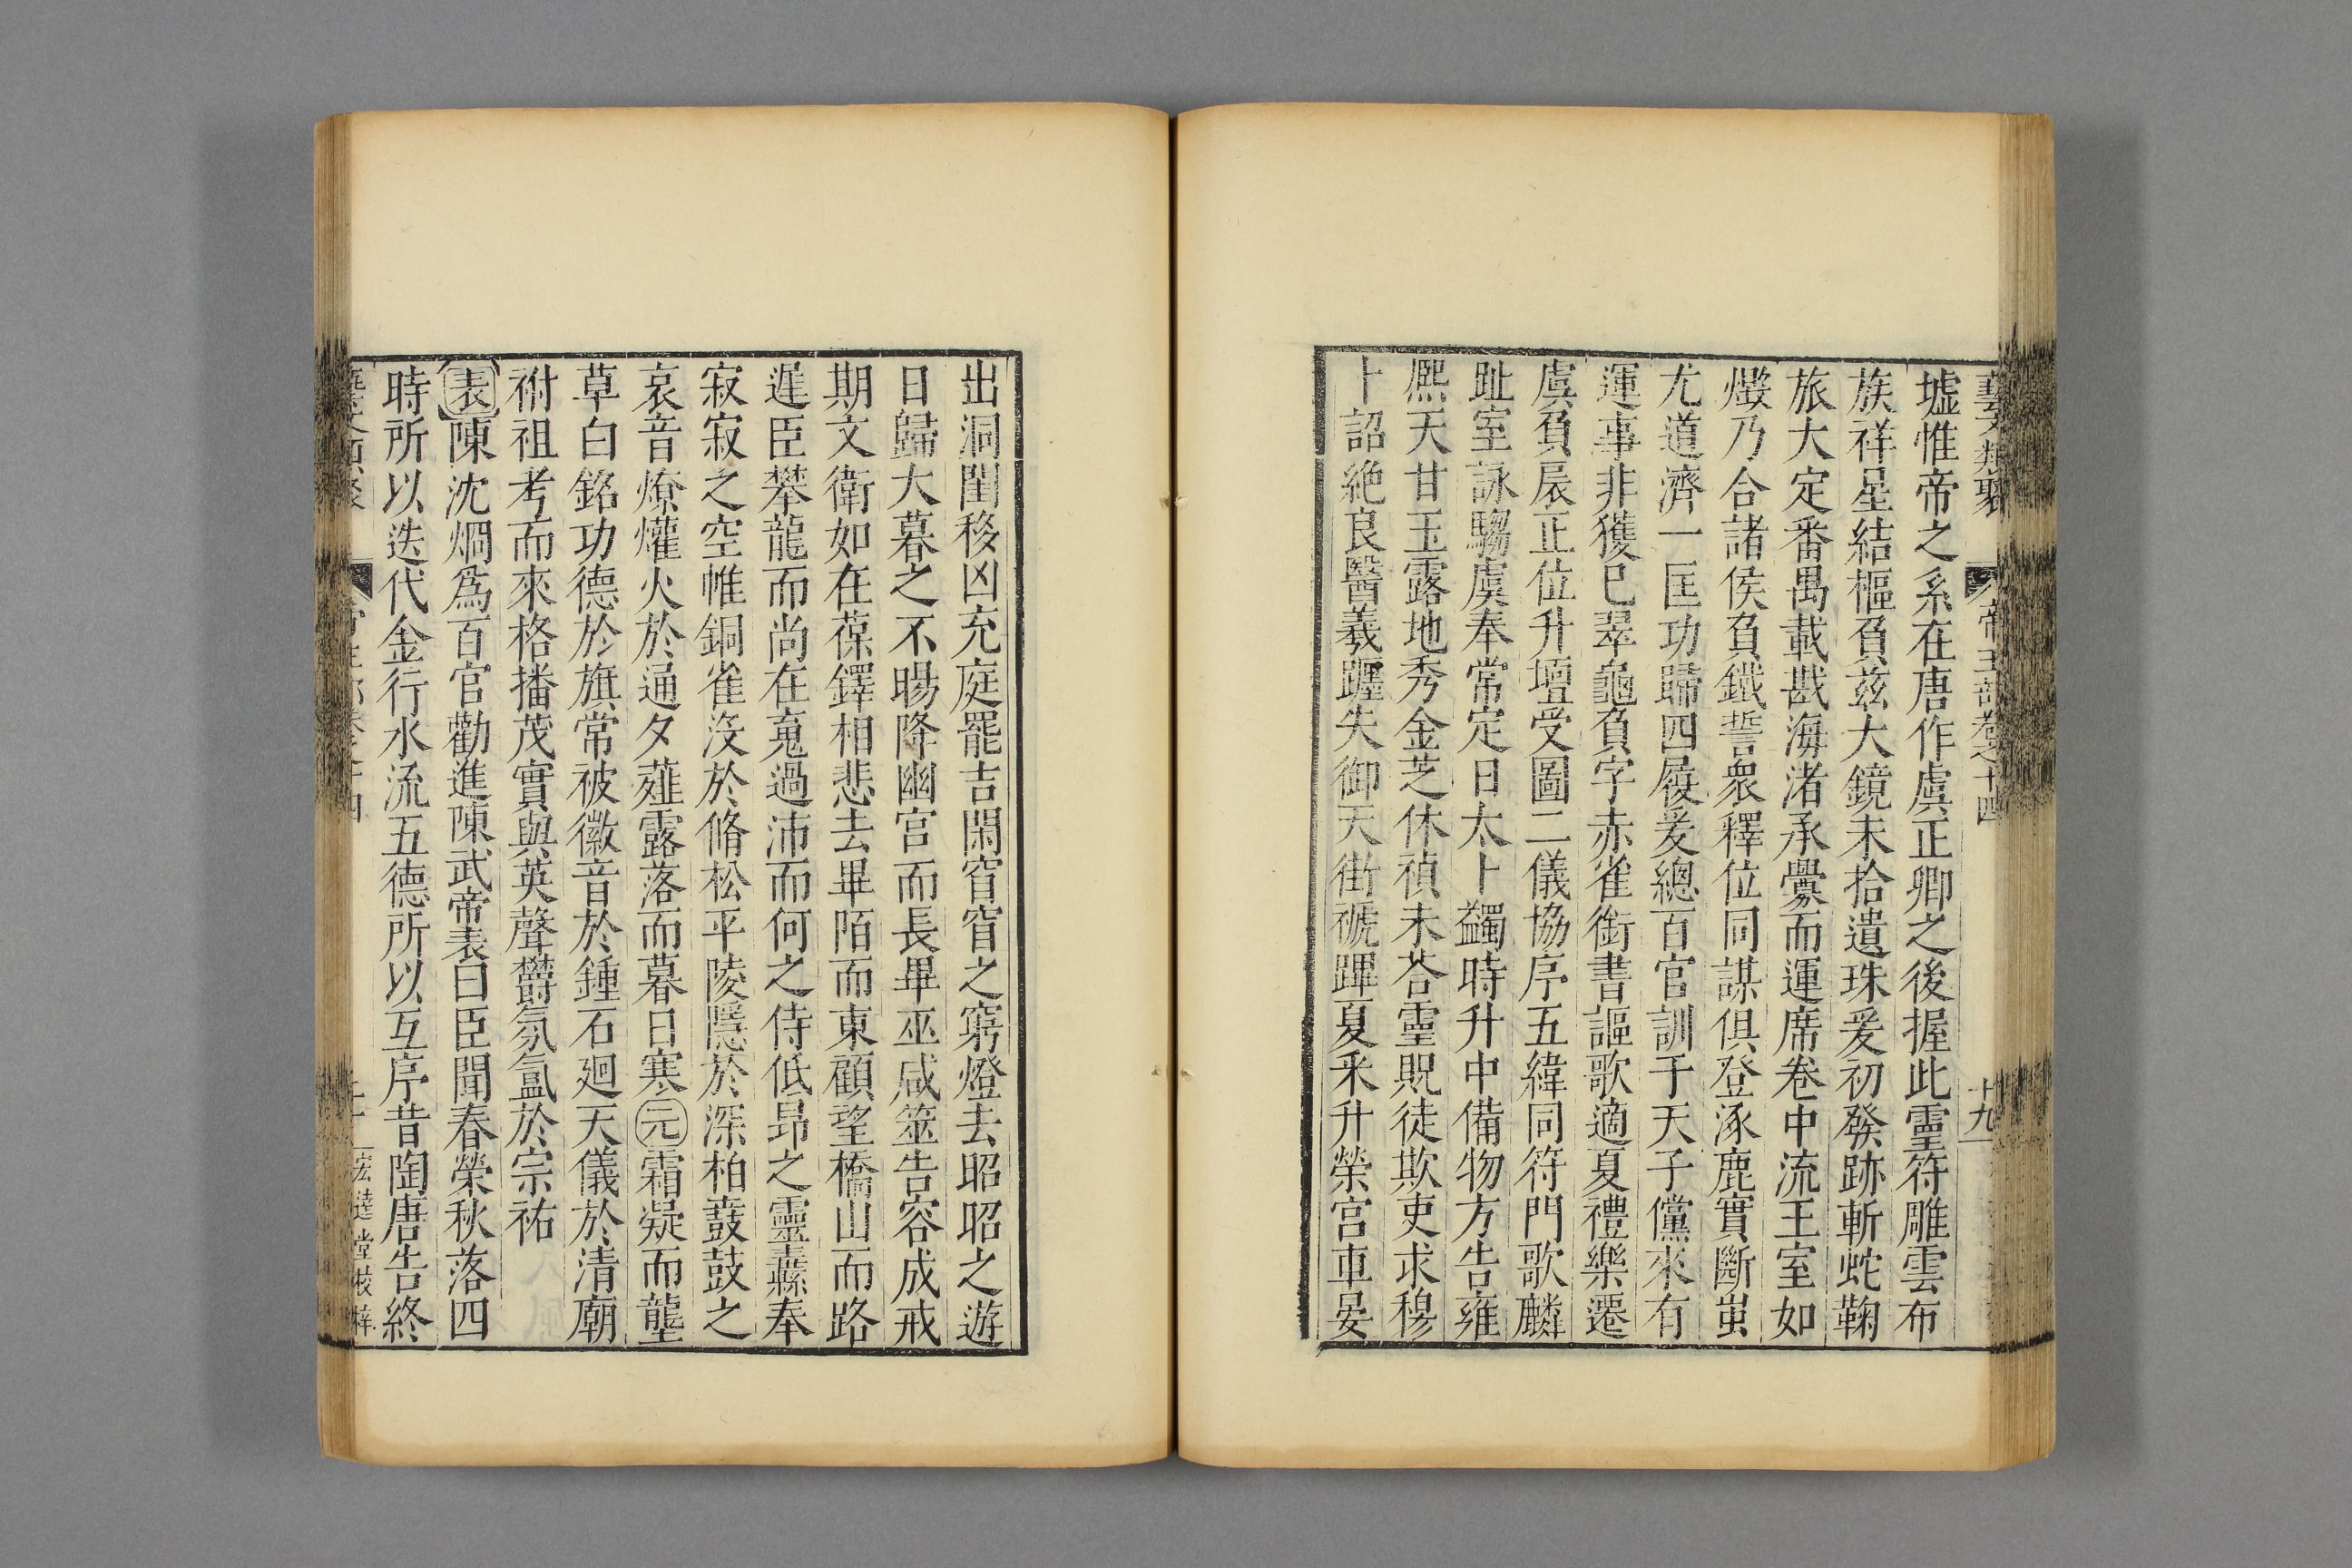 藝文類聚 帝王部卷之十四 十九
墟惟帝之系在唐作虞正卿之後握此靈符雕雲布
族祥星結樞負茲大鏡未拾遺珠爰初發跡斬蛇鞠
旅大定番禺載戡海渚承釁而運席卷中流王室如
燬乃合諸侯負鐵誓衆釋位同謀俱登涿鹿實斷蚩
尤道濟一匡功歸四履爰總百官訓于天子儻來有
運事非獲已翠龜負字赤雀銜書謳歌適夏禮樂遷
虞負扆正位升壇受圖二儀協序五緯同符門歌麟
趾室詠騶虞奉常定日太卜蠲時升中備物方告雍
熈天甘玉露地秀金芝休禎未荅靈貺徒欺吏求穆
卜詔絶良醫羲躔失御天街褫蹕夏釆升榮宫車晏
出洞閨移凶充庭罷吉閑窅窅之窮燈去昭昭之遊
日歸大暮之不暘降幽宫而長畢巫咸筮告容成戒
期文衛如在葆鐸相悲去畢陌而東顧望橋山而路
遲臣攀龍而尚在鳧過沛而何之侍低昂之靈蘤奉
寂寂之空帷銅雀沒於脩松平陵隱於深柏鼖鼓之
哀音燎爟火於通夕薤露落而暮日寒元霜凝而壟
草白銘功德於旗常被徽音於鍾石廻天儀於清廟
祔祖考而來格播茂實與英聲欝氛氳於宗祐
表陳沈烱爲百官勸進陳武帝表曰臣聞春榮秋落四
時所以迭代金行水流五德所以互序昔陶唐告終
宏達堂校梓